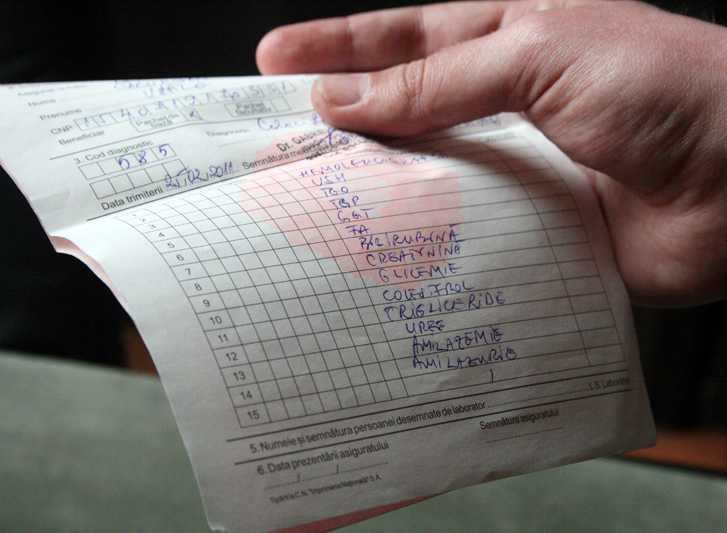 Nume
Prenume
CNP
Beneficiar Pachet de bază Pachet facultativ
3. Cod diagnostic Diagnostic
585 Dr.
Data trimiterii 25.02.2011 Semnătura
1 HEMOLEUCOGRAMA
2 VSH
3 TGO
4 TGP
5 GGT
6 FA
7 BILIRUBINĂ
8 CREATININA
9 GLICEMIE
10 COLESTEROL
11 TRIGLICERIDE
12 UREE
13 AMILAZEMIE
14 AMILAZURIE
15
L.S. Laborator
5. Numele și semnătura persoanei desemnate de laborator
6. Data prezentării asiguratului Semnătura asiguratului
Tipărit la C.N. "Imprimeria Națională" S.A.